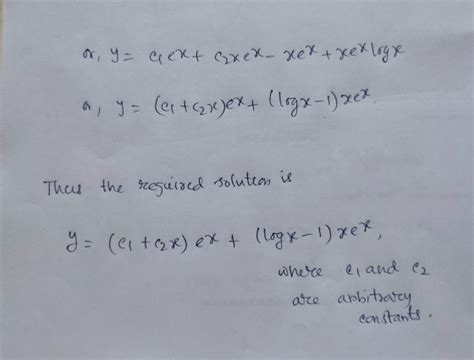 or, y = c₁eˣ + c₂xeˣ - xeˣ + xeˣ logx
or, y = (c₁ + c₂x)eˣ + (logx-1)xeˣ.
Thus the required solution is
y = (c₁ + c₂x) eˣ + (logx-1) xeˣ,
where c₁ and c₂
are arbitrary
constants.